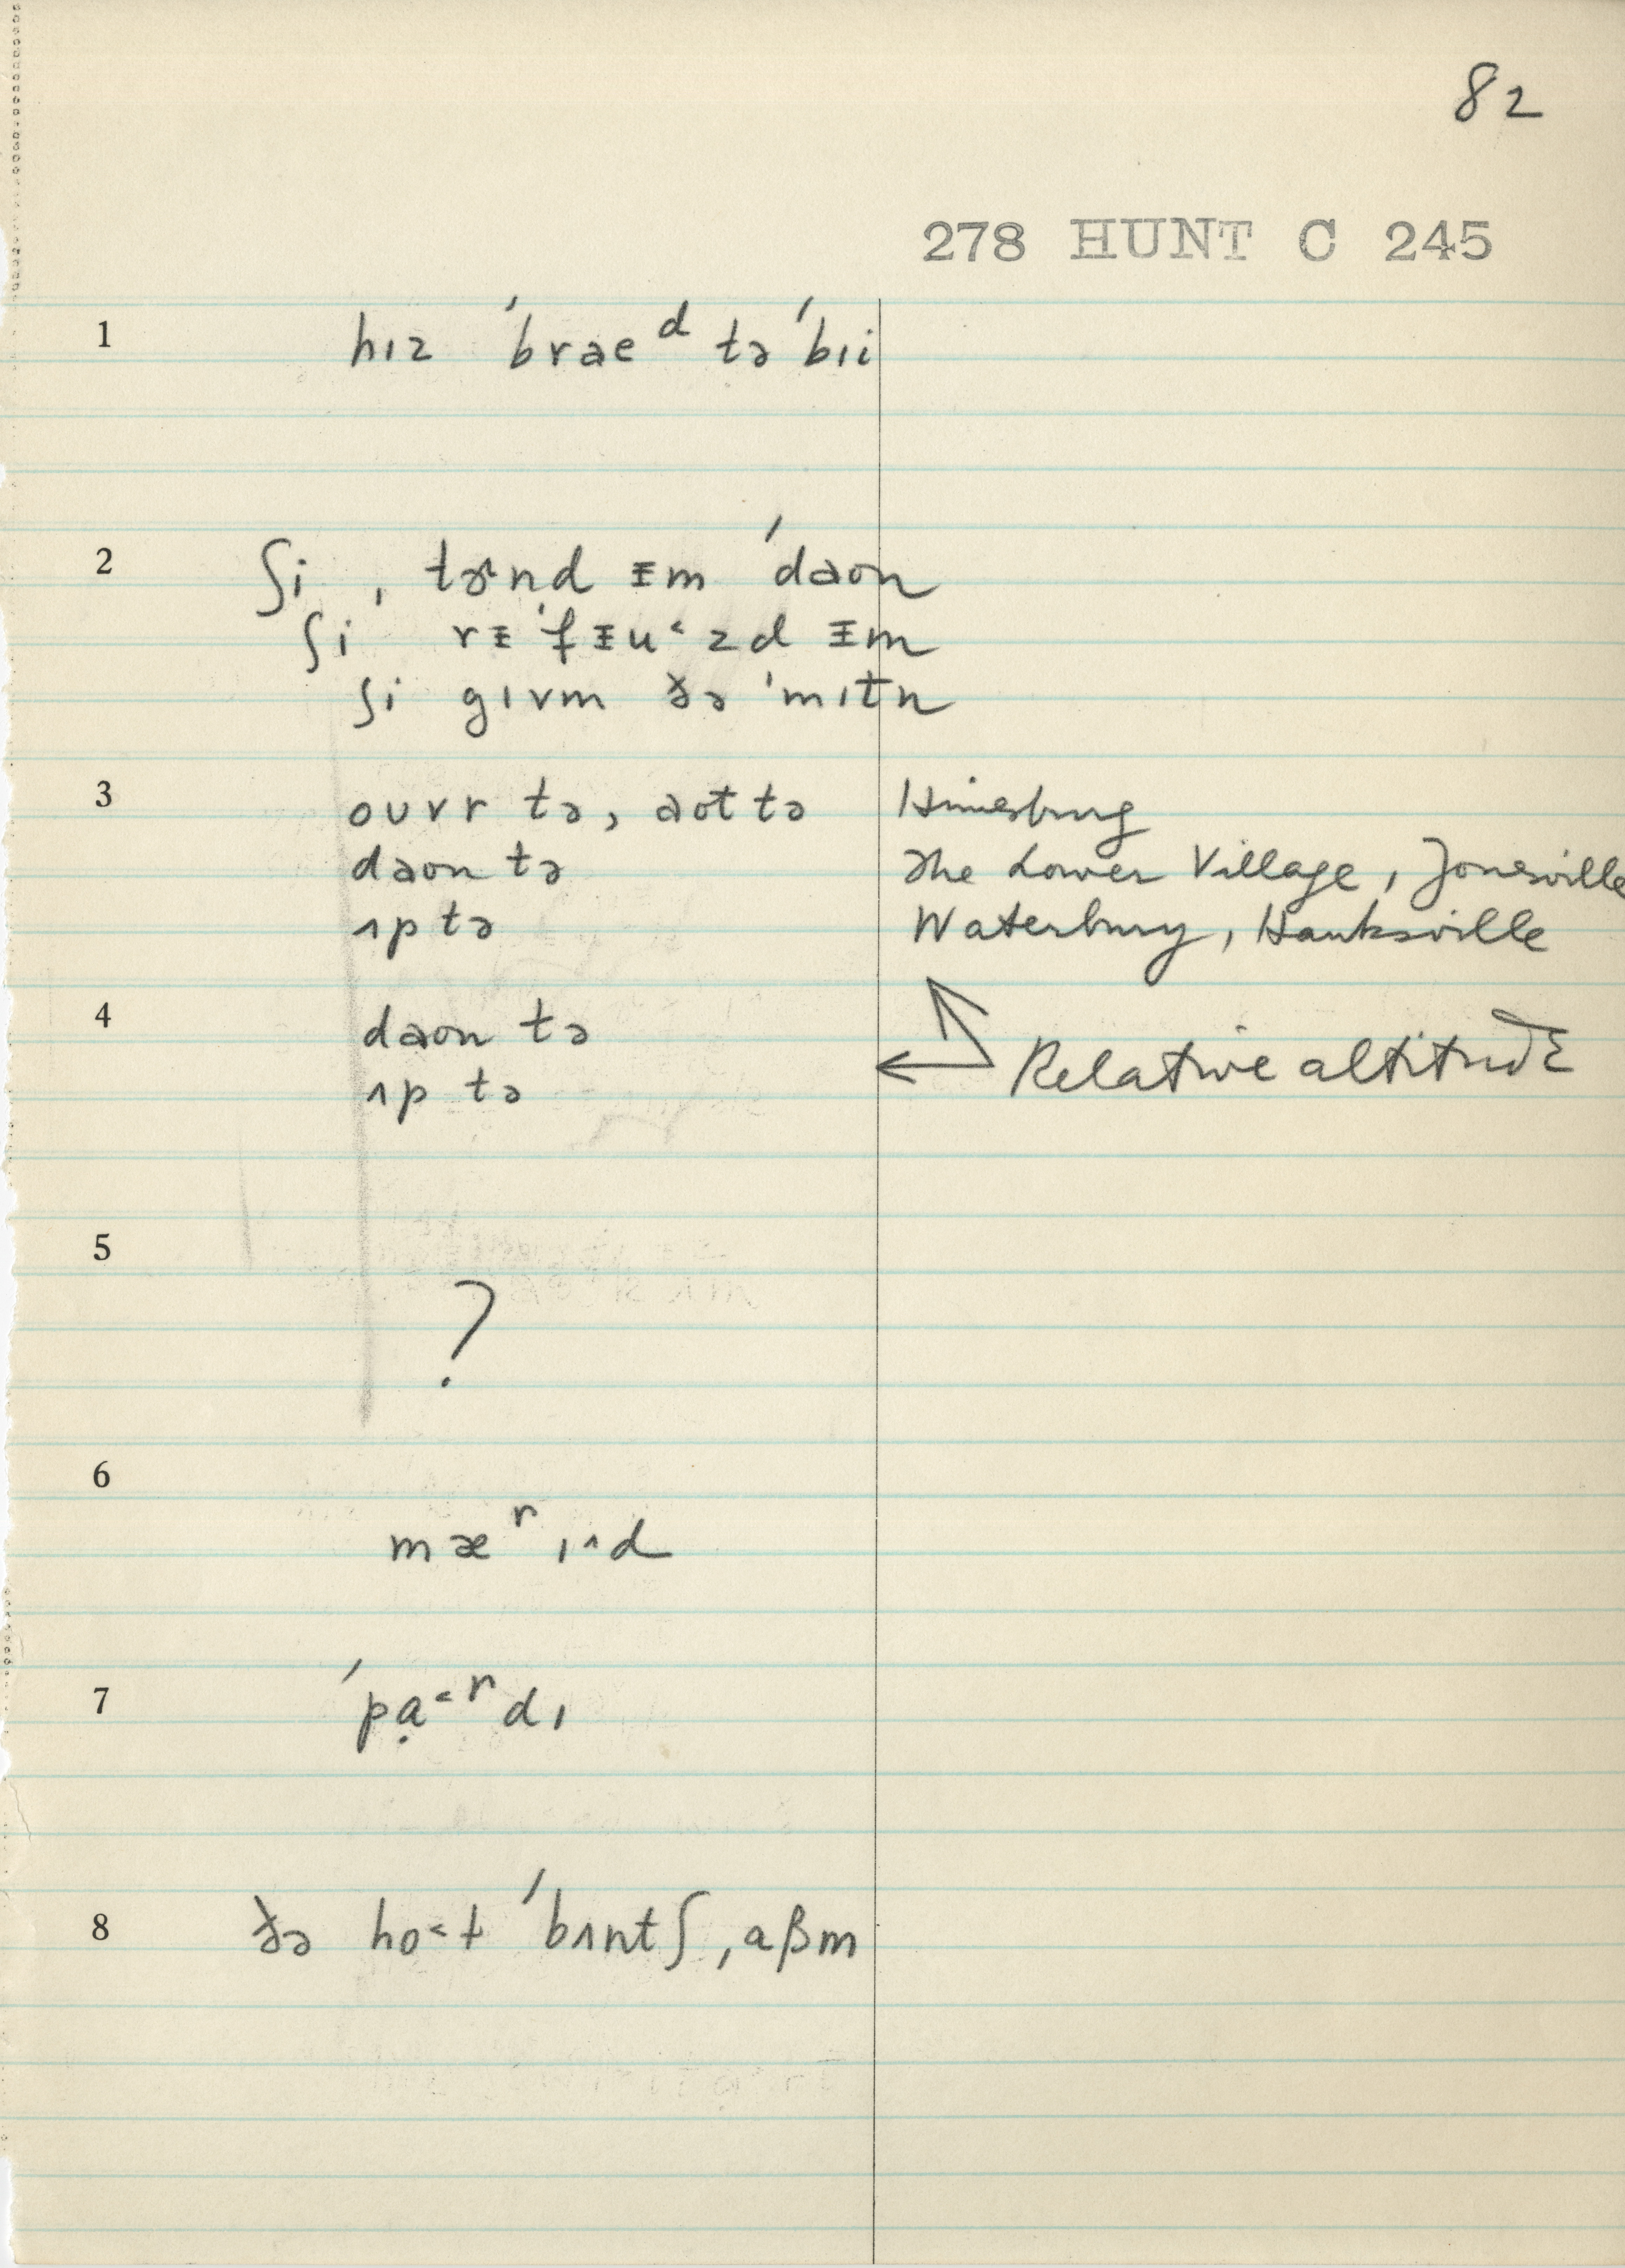 82
278 HUNT C 245
1 hɪz ˈbrae ᵈ tə ˈbɪi
2 ʃi ˌtɚnd ᵻm ˈdaon
ʃi rᵻˈfᵻu˂zd ᵻm
ʃi gɪvm ðə ˈmɪtn
3 ouvr tə, aot tə Hinesburg
daon tə The Lower Village, Jonesville
ʌp tə Waterbury, Hanksville
4 daon tə
ʌp tə Relative altitude
5 ?
6 mæ ʳ ɪ˄d
7 ˈpạ˂ʳdɪ
8 ðə ho˂ɫ ˈbʌntʃ ˌaβm